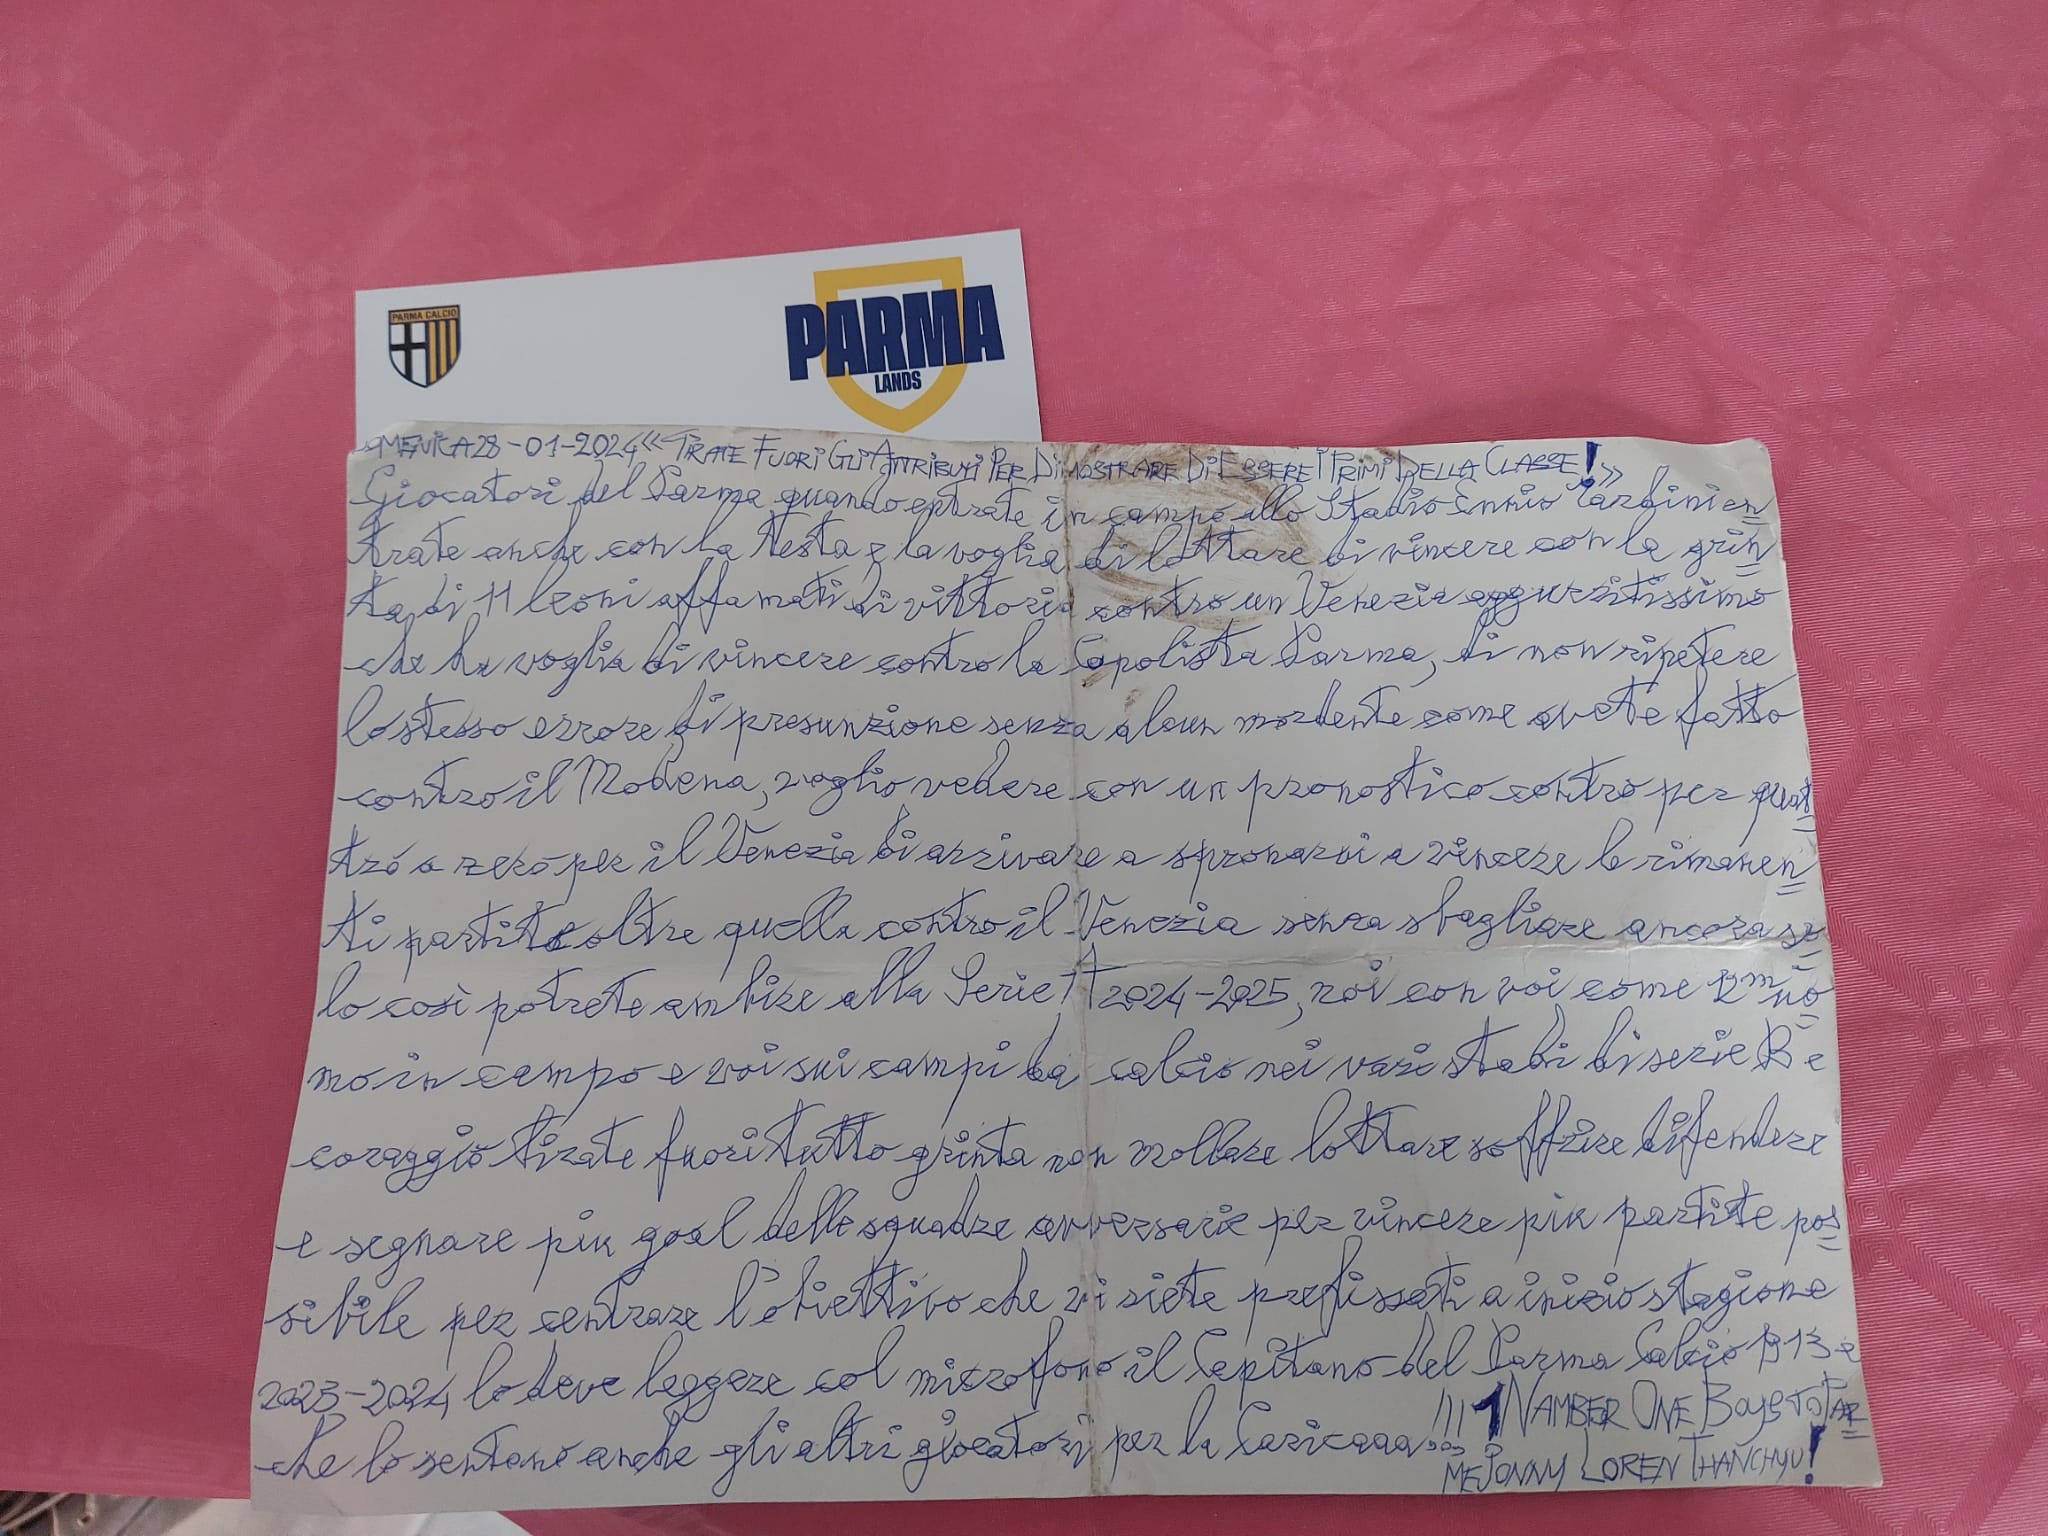 PARMA CALCIO
PARMA
LANDS
DOMENICA 28-01-2024 «TIRATE FUORI GLI ATTRIBUTI PER DIMOSTRARE DI ESSERE I PRIMI DELLA CLASSE!»
Giocatori del Parma quando entrate in campo allo Stadio Ennio Tardini en
trate anche con la testa e la voglia di lottare di vincere con la grin
ta di 11 leoni affamati di vittoria contro un Venezia agguerritissimo
che ha voglia di vincere contro la Capolista Parma, di non ripetere
lo stesso errore di presunzione senza alcun mordente come avete fatto
contro il Modena, voglio vedere con un pronostico contro per quat
tro a zero per il Venezia di arrivare a spronarvi a vincere le rimanen
ti partite oltre quella contro il Venezia senza sbagliare ancora so
lo così potrete ambire alla Serie A 2024-2025, noi con voi come 12mo uo
mo in campo e voi sui campi da calcio nei vari stadi di serie B e
coraggio tirate fuori tutto grinta non mollare lottare soffrire difendere
e segnare più goal delle squadre avversarie per vincere più partite pos
sibile per centrare l'obiettivo che vi siete prefissati a inizio stagione
2023-2024, lo deve leggere col microfono il Capitano del Parma Calcio 1913 e
che lo sentano anche gli altri giocatori per la Caricaaa...!!!
1 NAMBER ONE BOYS TO PAR
ME JONNY LOREN THANCHYU!